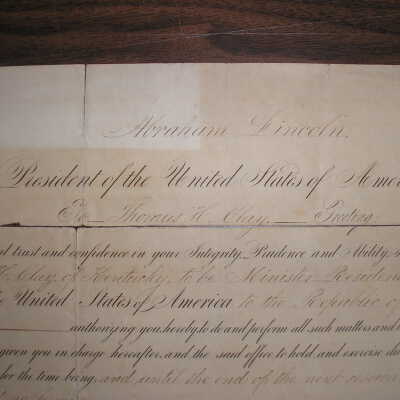 Abraham Lincoln.
President of the United States of Ame
To Thomas H. Clay, Greeting:
trust and confidence in your Integrity, Prudence and Ability,
H. Clay, of Kentucky, to be Minister Resident
United States of America to the Republic of
authorizing you hereby to do and perform all such matters and
given you in charge hereafter, and the said office to hold and exercise du
for the time being, and until the end of the next